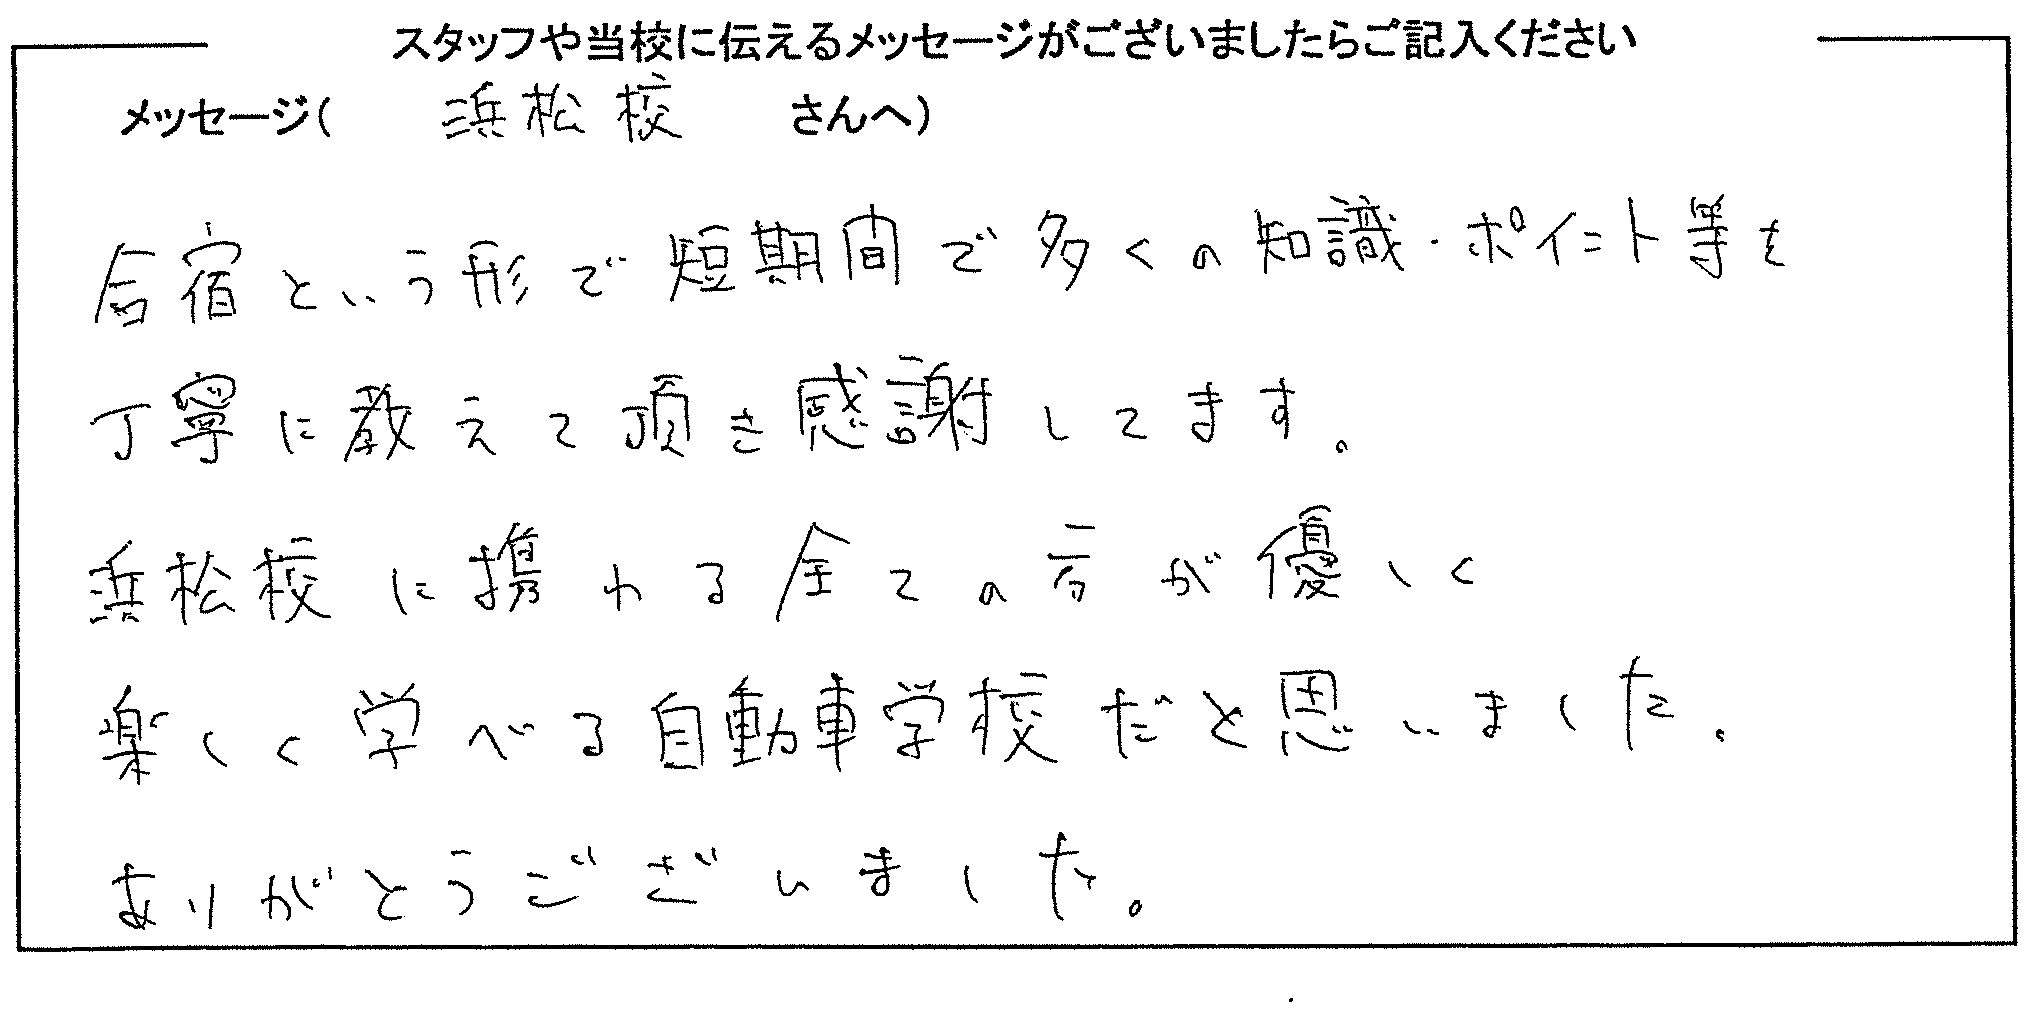 スタッフや当校に伝えるメッセージがございましたらご記入ください
メッセージ( 浜松校 さんへ)
合宿という形で短期間で多くの知識・ポイント等を
丁寧に教えて頂き感謝してます。
浜松校に携わる全ての方が優しく
楽しく学べる自動車学校だと思いました。
ありがとうございました。